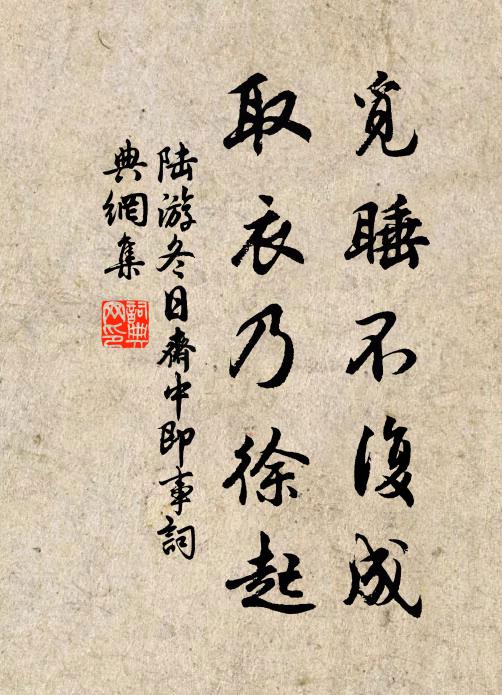 覓睡不復成
取衣乃徐起
陸游冬日齋中即事詞
典網集
詞典網印